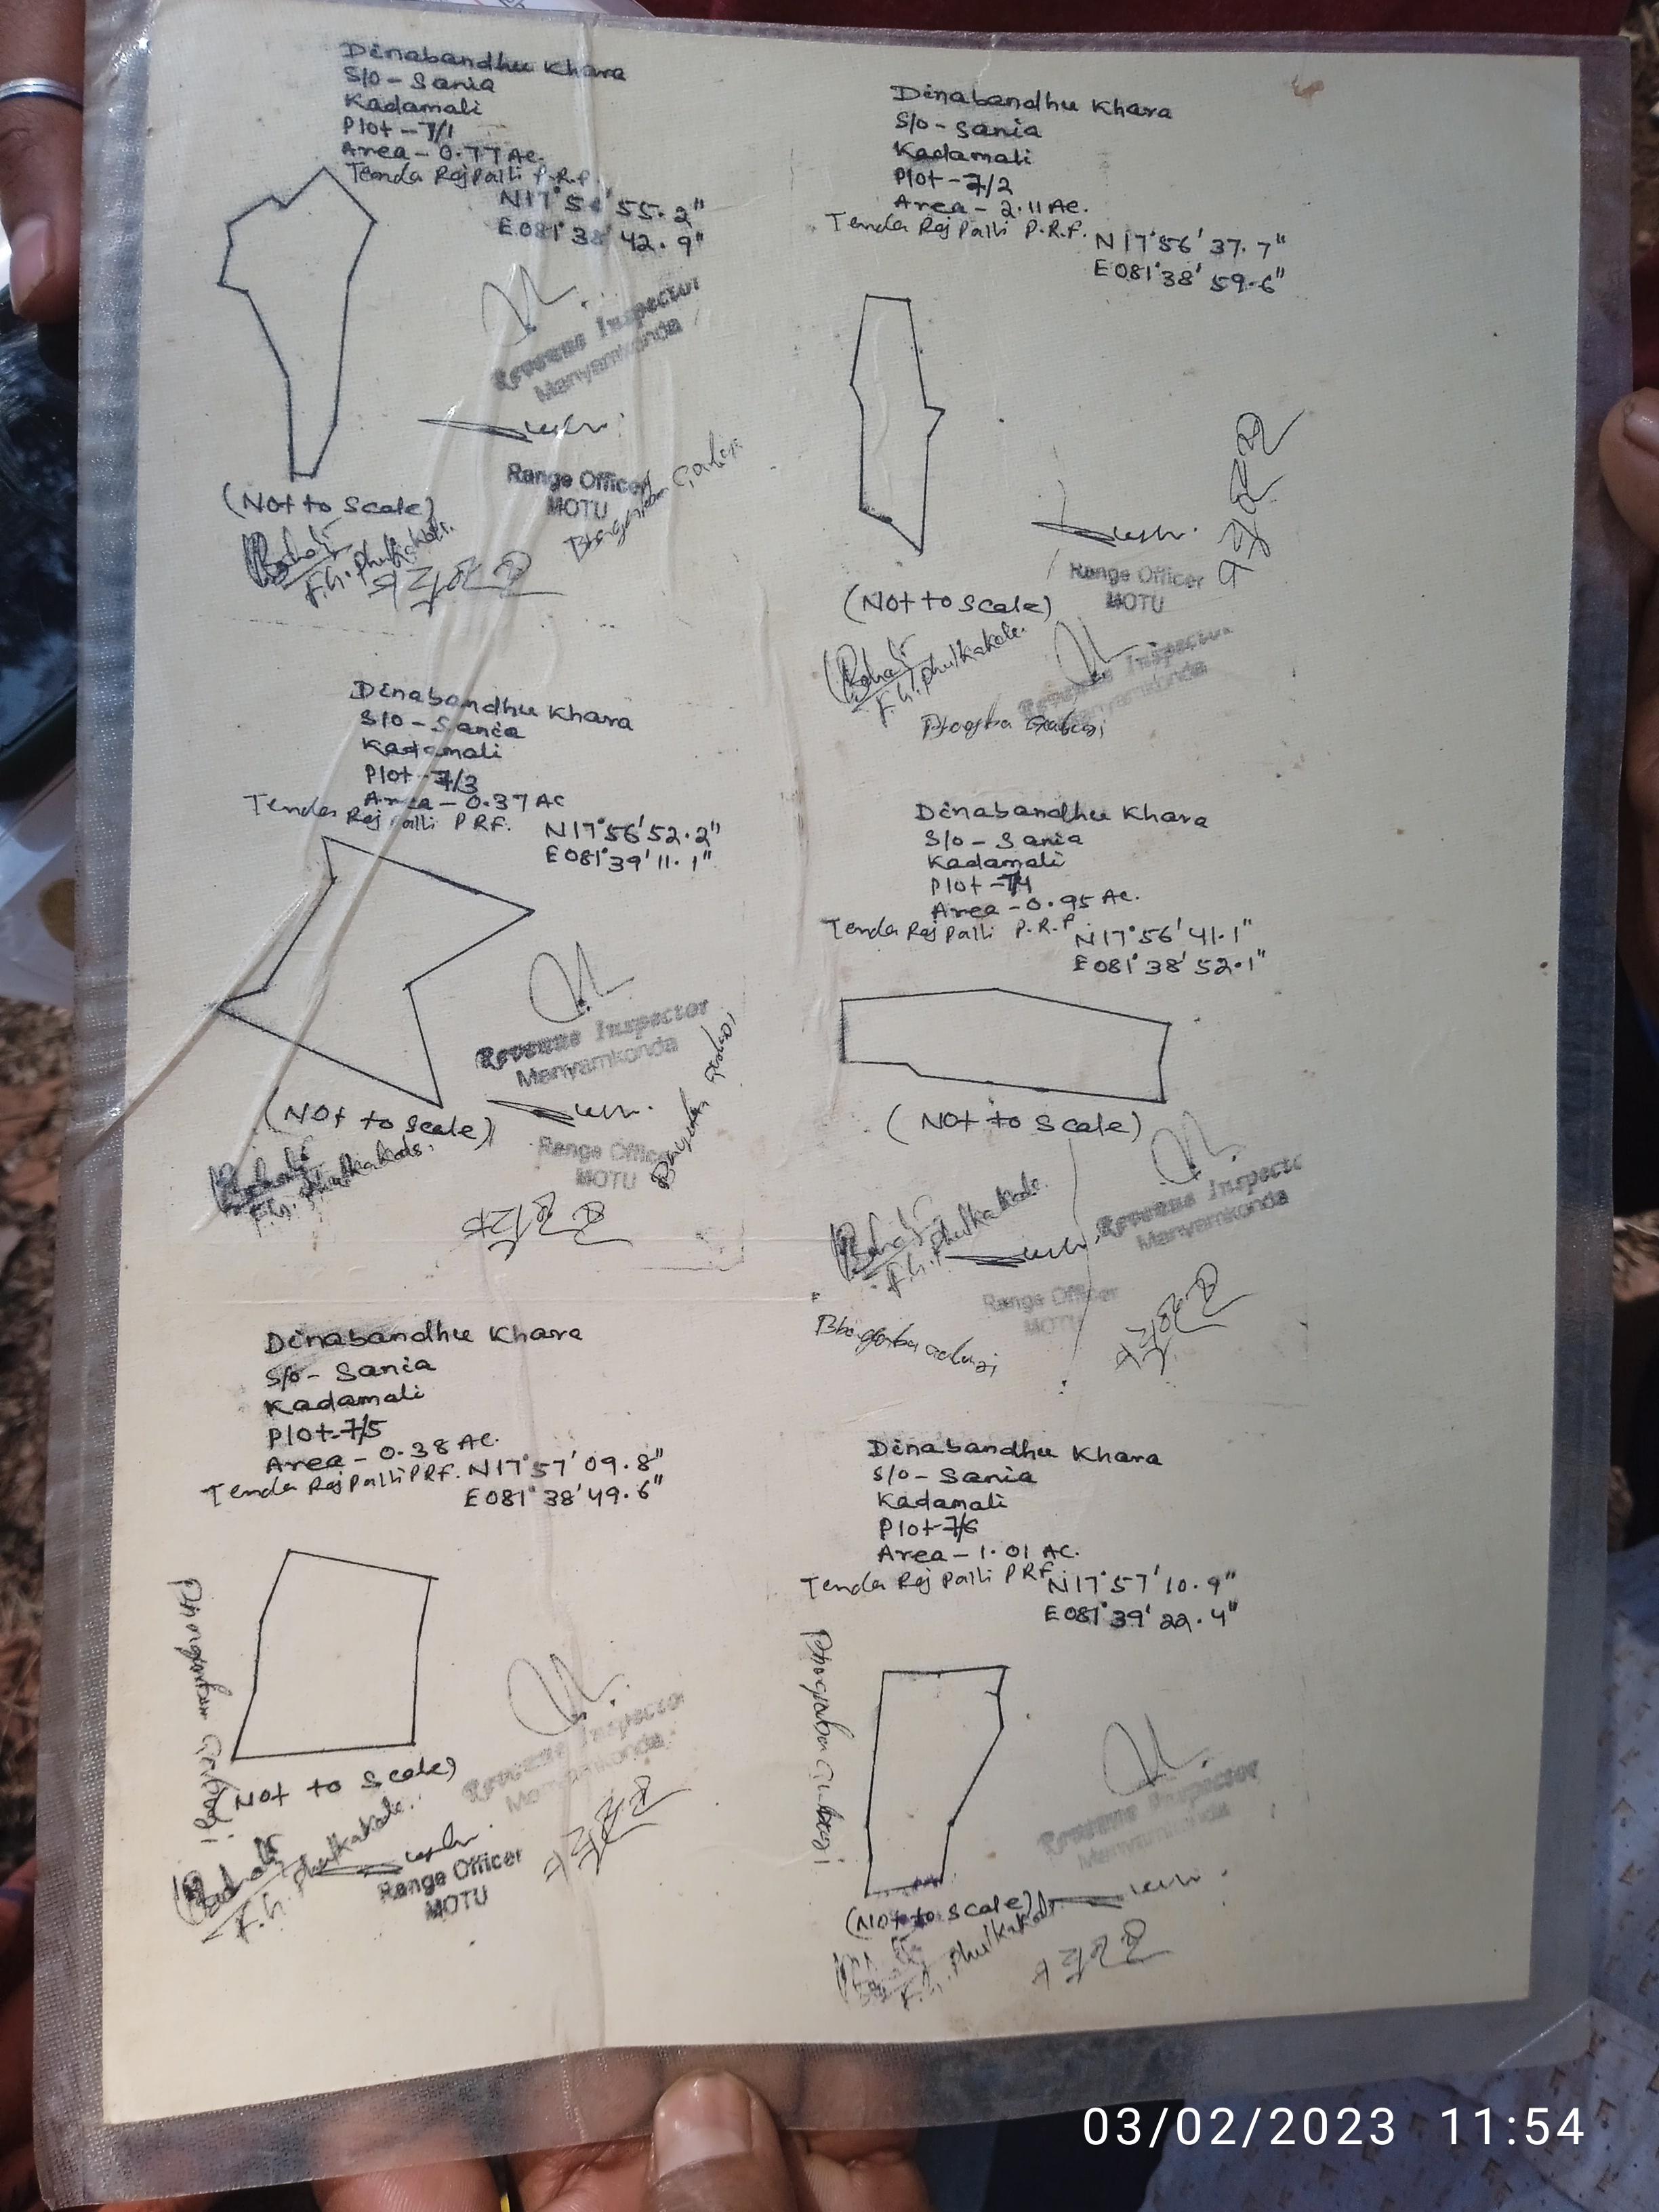 Dinabandhu Khara
S/O - Sania
Kadamali
Plot - 7/1
Area - 0.77 Ac.
Tenda Raj Palli P.R.F.
N17° 55.2"
E081° 38' 42.9"
Revenue Inspector
Manyamkonda
Range Officer
MOTU
(Not to Scale)
F.G. Phulkakada.
Dinabandhu Khara
S/o - Sania
Kadamali
Plot - 7/2
Area - 2.11 Ac.
Tenda Raj Palli P.R.F.
N17°56' 37.7"
E081°38' 59.6"
Range Officer
MOTU
(Not to Scale)
F.G. Phulkakada.
Revenue Inspector
Manyamkonda
Dinabandhu Khara
S/O - Sania
Kadamali
Plot - 7/3
Area - 0.37 AC
Tenda Raj Palli PRF.
N17°56'52.2"
E081°39'11.1"
Revenue Inspector
Manyamkonda
(Not to Scale)
Range Officer
MOTU
F.G. Phulkakada.
Dinabandhu Khara
S/o - Sania
Kadamali
Plot - 7/4
Area - 0.95 Ac.
Tenda Raj Palli P.R.F
N17°56'41.1"
E081°38'52.1"
(Not to Scale)
Revenue Inspector
Manyamkonda
F.G. Phulkakada.
Range Officer
MOTU
Dinabandhu Khara
S/o - Sania
Kadamali
Plot - 7/5
Area - 0.38 AC.
Tenda Raj Palli PRF.
N17°57'09.8"
E081°38'49.6"
(Not to Scale)
Revenue Inspector
Manyamkonda
F.G. Phulkakada.
Range Officer
MOTU
Dinabandhu Khara
S/o - Sania
Kadamali
Plot - 7/6
Area - 1.01 AC.
Tenda Raj Palli PRF
N17°57'10.9"
E081°39'22.4"
Revenue Inspector
Manyamkonda
(Not to Scale)
F.G. Phulkakada
03/02/2023 11:54